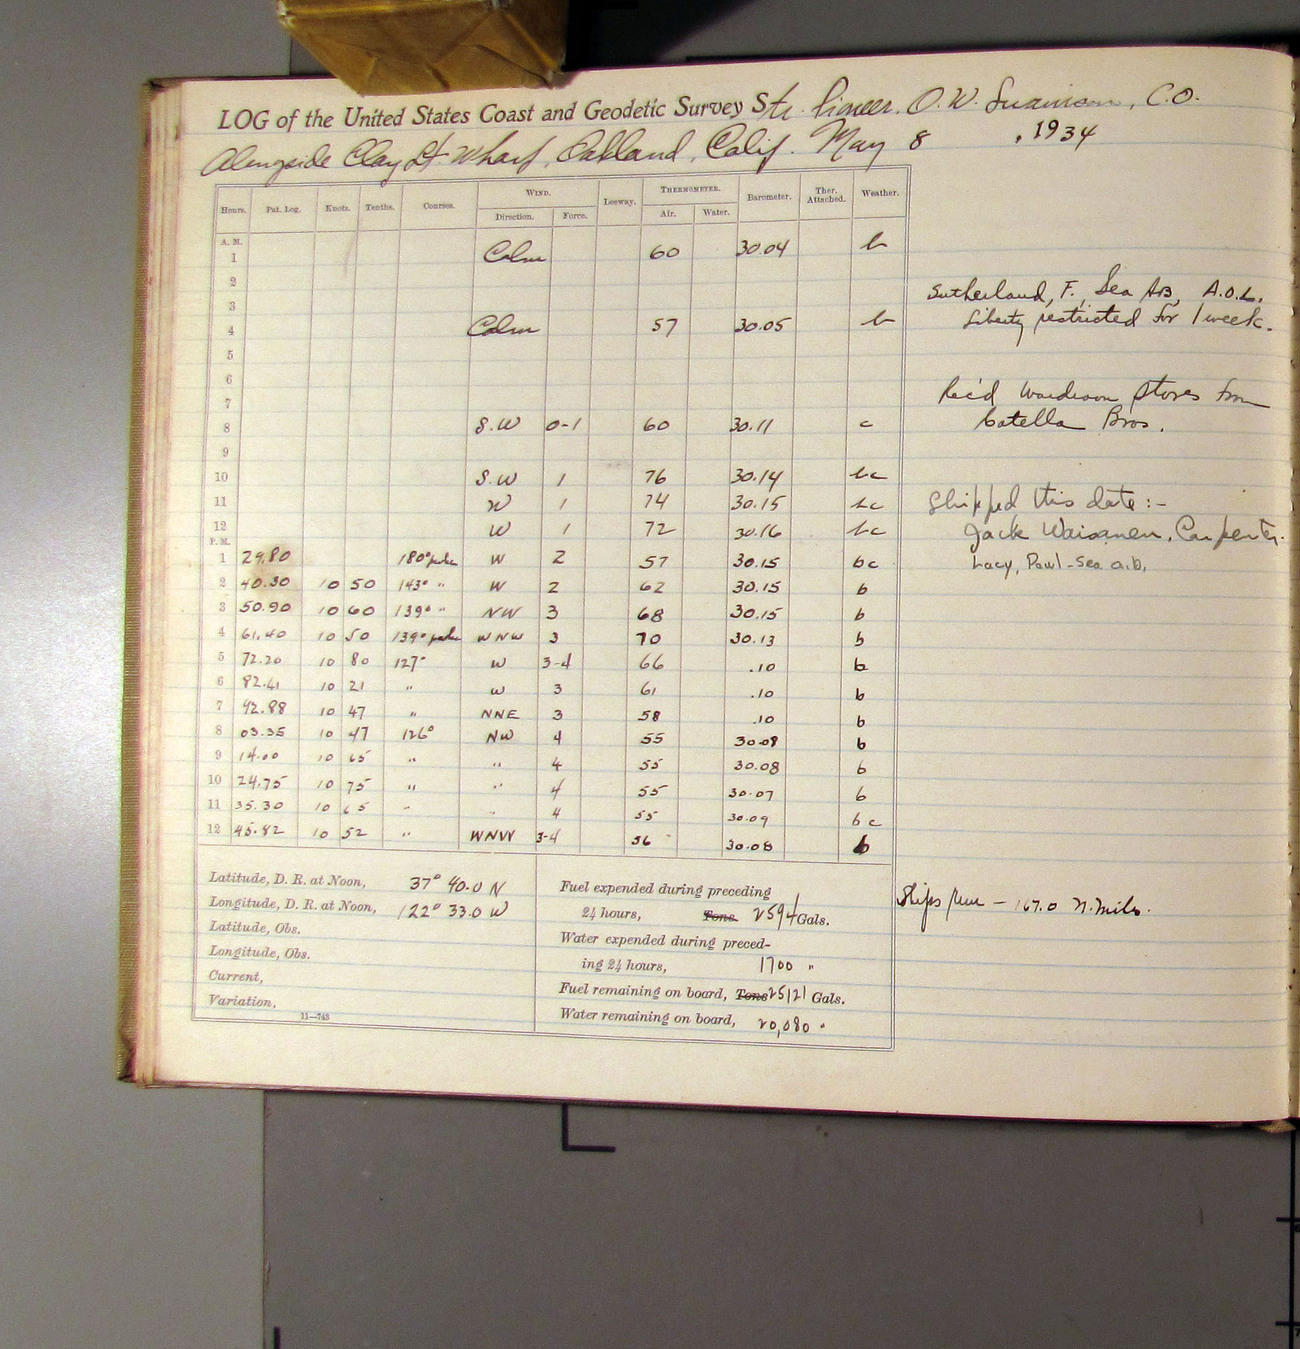 LOG of the United States Coast and Geodetic Survey Str. Pioneer. O.W. Swainson, C.O.
Alongside Clay St. Wharf, Oakland, Calif. May 8, 1934
Hours. Pat. Log. Knots. Tenths. Courses. WIND. Leeway. THERMOMETER. Barometer. Ther. Attached. Weather.
Direction. Force. Air. Water.
A. M.
1 Calm 60 30.04 b
2
3 Sutherland, F., Sea AB, A.O.L.
4 Calm 57 30.05 b Liberty restricted for 1 week.
5
6
7 Rec'd Wardroom Stores from
8 S.W 0-1 60 30.11 c Catella Bros.
9
10 S.W 1 76 30.14 bc
11 W 1 74 30.15 bc Shipped this date:-
12 W 1 72 30.16 bc Jack Waisanen, Carpenter.
P. M.
1 29.80 180° W 2 57 30.15 bc Lacy, Paul - Sea a.b,
2 40.30 10 50 143° " W 2 62 30.15 b
3 50.90 10 60 139° " NW 3 68 30.15 b
4 61.40 10 50 139° WNW 3 70 30.13 b
5 72.20 10 80 127° W 3-4 66 .10 b
6 82.41 10 21 " W 3 61 .10 b
7 92.88 10 47 " NNE 3 58 .10 b
8 03.35 10 47 126° NW 4 55 30.08 b
9 14.00 10 65 " " 4 55 30.08 b
10 24.75 10 75 " " 4 55 30.07 b
11 35.30 10 65 " " 4 55 30.09 bc
12 45.82 10 52 " WNW 3-4 56 30.08 b
Latitude, D. R. at Noon, 37° 40.0 N
Longitude, D. R. at Noon, 122° 33.0 W
Latitude, Obs.
Longitude, Obs.
Current,
Variation,
11—743
Fuel expended during preceding
24 hours, Tons. 2594 Gals.
Water expended during preced-
ing 24 hours, 1700 "
Fuel remaining on board, Tons 25121 Gals.
Water remaining on board, 20,080 "
Ships run - 167.0 N. Miles.